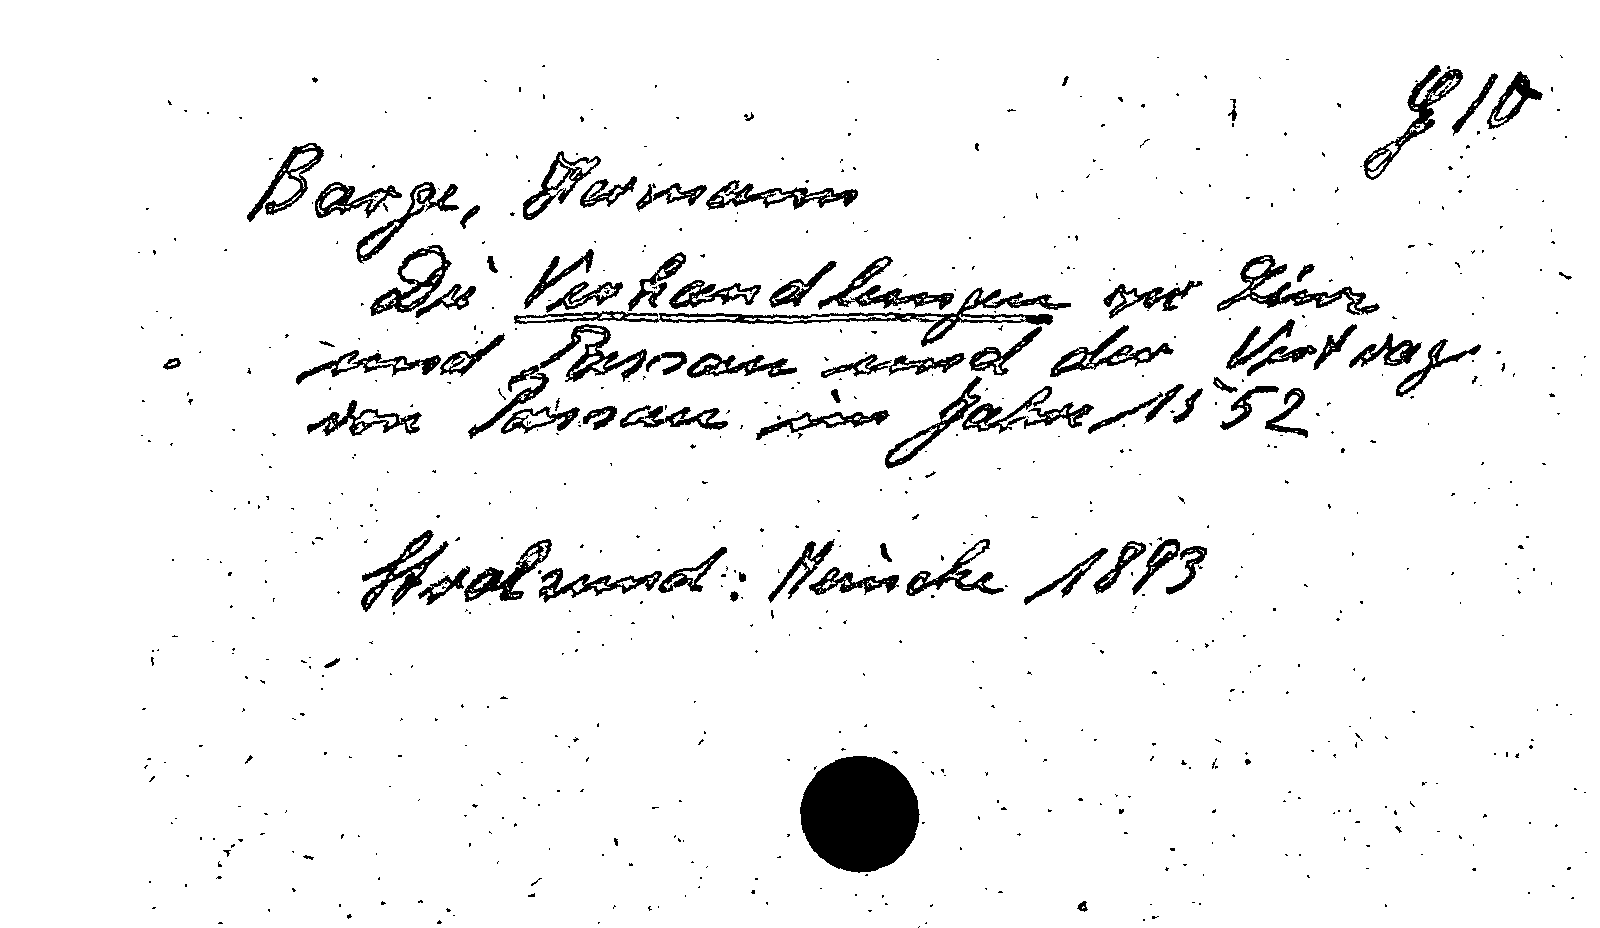 G 10
Barge, Hermann
Die Verhandlungen zu Linz
und Passau und der Vertrag
von Passau im Jahre 1552
Stralsund: Meincke 1893